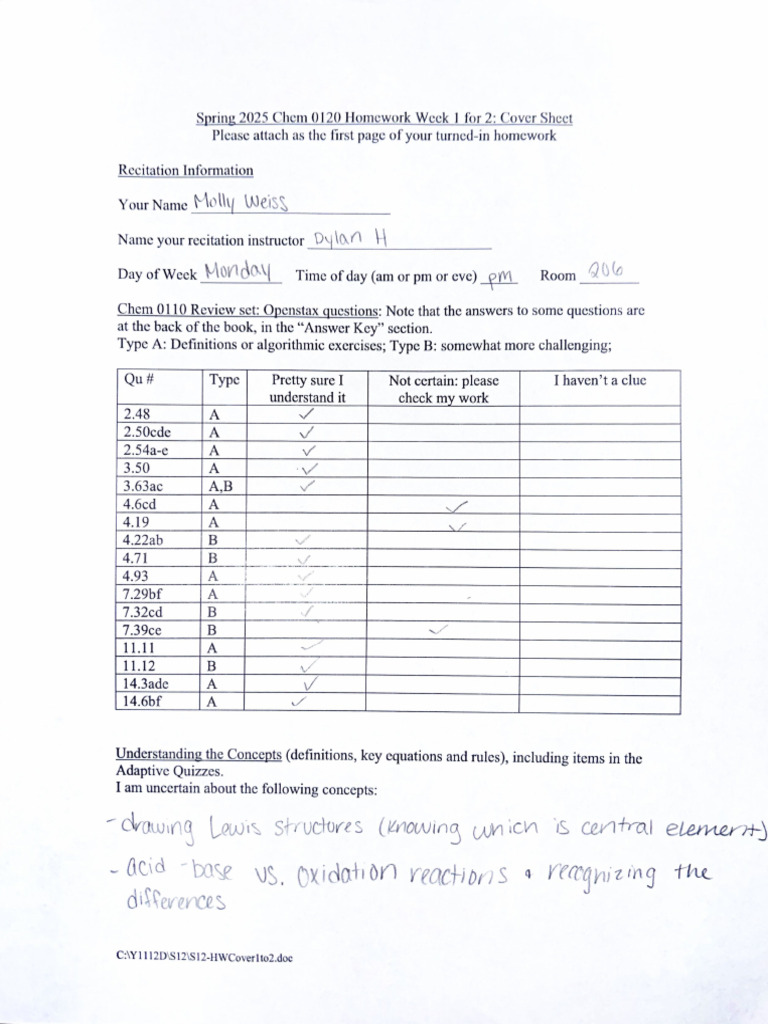 Spring 2025 Chem 0120 Homework Week 1 for 2: Cover Sheet
Please attach as the first page of your turned-in homework
Recitation Information
Your Name Molly Weiss
Name your recitation instructor Dylan H
Day of Week Monday Time of day (am or pm or eve) pm Room 206
Chem 0110 Review set: Openstax questions: Note that the answers to some questions are
at the back of the book, in the “Answer Key” section.
Type A: Definitions or algorithmic exercises; Type B: somewhat more challenging;
Qu # Type Pretty sure I understand it Not certain: please check my work I haven’t a clue
2.48 A ✓
2.50cde A ✓
2.54a-e A ✓
3.50 A ✓
3.63ac A,B ✓
4.6cd A ✓
4.19 A ✓
4.22ab B ✓
4.71 B ✓
4.93 A ✓
7.29bf A ✓
7.32cd B ✓
7.39ce B ✓
11.11 A ✓
11.12 B ✓
14.3ade A ✓
14.6bf A ✓
Understanding the Concepts (definitions, key equations and rules), including items in the
Adaptive Quizzes.
I am uncertain about the following concepts:
- drawing Lewis structures (knowing which is central element)
- acid-base vs. oxidation reactions & recognizing the
differences
C:\Y1112D\S12\S12-HWCover1to2.doc